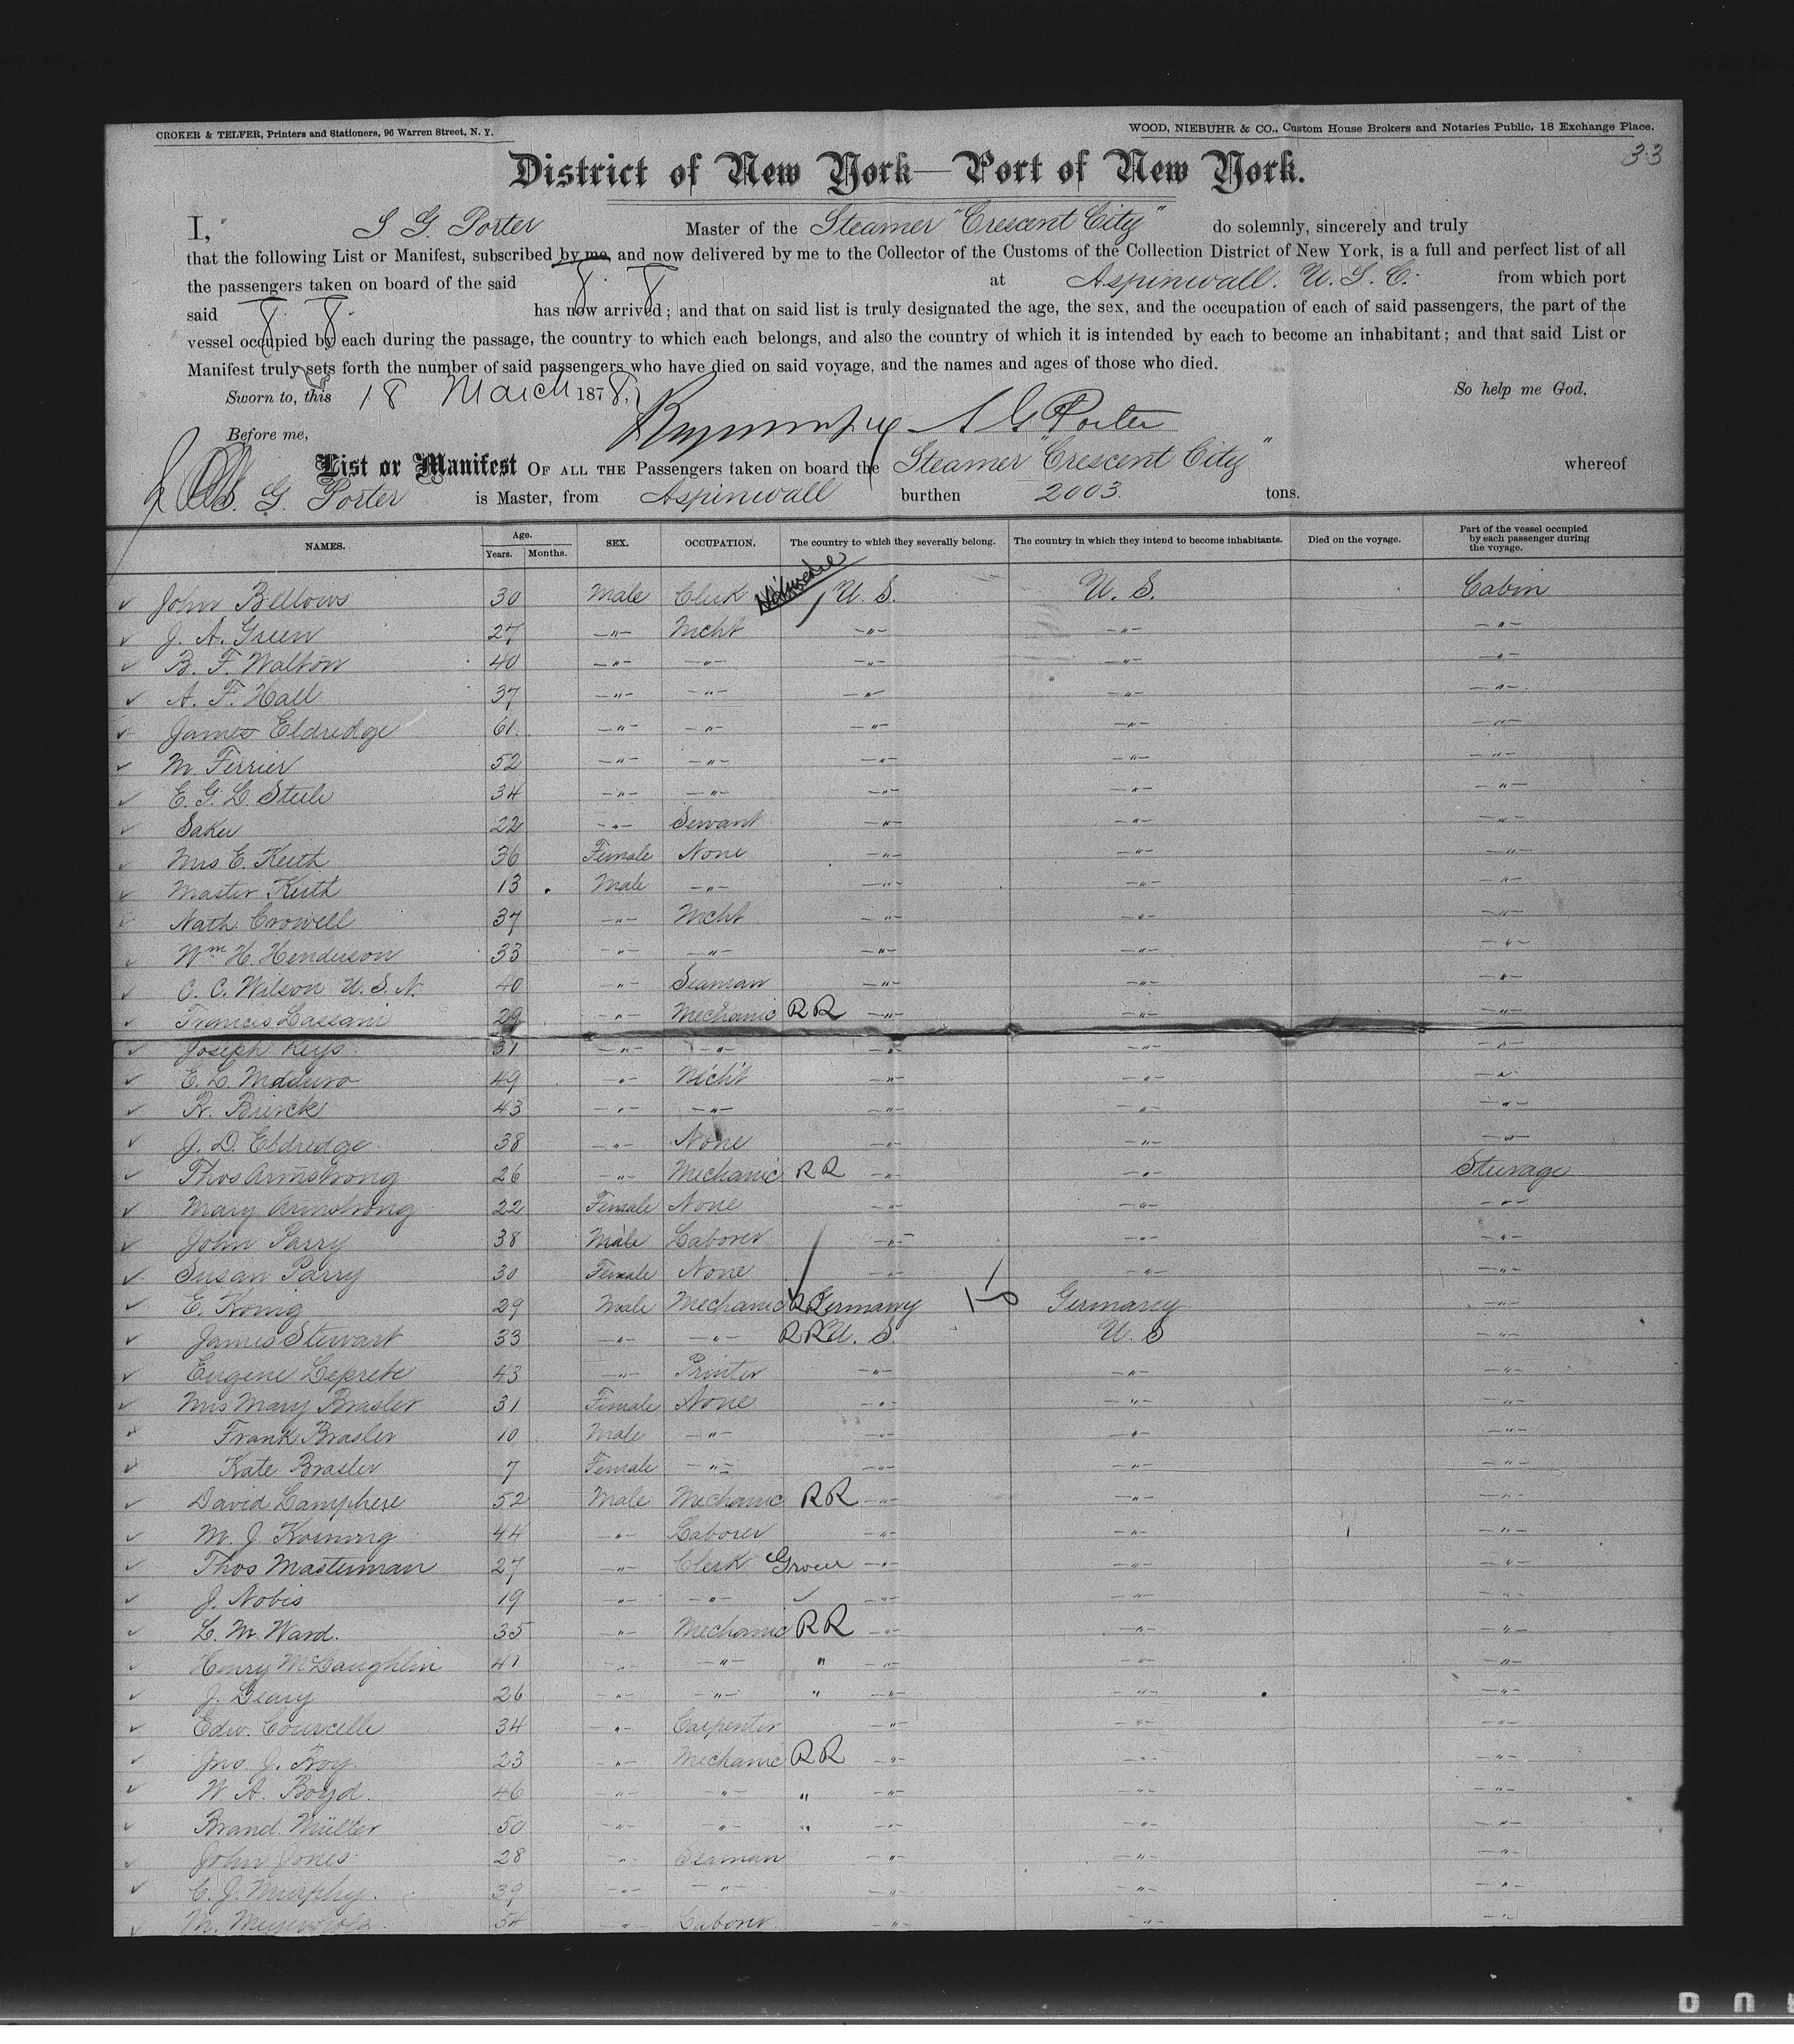 CROKER & TELFER, Printers and Stationers, 96 Warren Street, N. Y.
WOOD, NIEBUHR & CO., Custom House Brokers and Notaries Public, 18 Exchange Place.
33
District of New York—Port of New York.
I, S G. Porter Master of the Steamer "Crescent City" do solemnly, sincerely and truly
that the following List or Manifest, subscribed by me, and now delivered by me to the Collector of the Customs of the Collection District of New York, is a full and perfect list of all
the passengers taken on board of the said at Aspinwall. U. S. C. from which port
said has now arrived; and that on said list is truly designated the age, the sex, and the occupation of each of said passengers, the part of the
vessel occupied by each during the passage, the country to which each belongs, and also the country of which it is intended by each to become an inhabitant; and that said List or
Manifest truly sets forth the number of said passengers who have died on said voyage, and the names and ages of those who died.
Sworn to, this 18 March 1878, So help me God,
S G Porter
Before me,
List or Manifest OF ALL THE Passengers taken on board the Steamer "Crescent City" whereof
S. G. Porter is Master, from Aspinwall burthen 2003. tons.
NAMES. Age. Years. Months. SEX. OCCUPATION. The country to which they severally belong. The country in which they intend to become inhabitants. Died on the voyage. Part of the vessel occupied by each passenger during the voyage.
John Bellows 30 Male Clerk U. S. U. S. Cabin
J. A. Green 27 —"— Mcht —"— —"— —"—
B. F. Walton 40 —"— —"— —"— —"— —"—
A. F. Hall 37 —"— —"— —"— —"— —"—
James Eldredge 61 —"— —"— —"— —"— —"—
M. Ferrier 52 —"— —"— —"— —"— —"—
E. G. L. Steele 34 —"— —"— —"— —"— —"—
Saku 22 —"— Servant —"— —"— —"—
Mrs E. Keith 36 Female None —"— —"— —"—
Master Keith 13 Male —"— —"— —"— —"—
Nath. Crowell 37 —"— Mcht —"— —"— —"—
Wm H. Henderson 33 —"— —"— —"— —"— —"—
C. C. Wilson U. S. N. 40 —"— Seaman —"— —"— —"—
Francis Lassani 29 —"— Mechanic RR —"— —"— —"—
Joseph Keys 31 —"— —"— —"— —"— —"—
E. L. Maduro 49 —"— Mcht —"— —"— —"—
R. Brierck 43 —"— —"— —"— —"— —"—
J. D. Eldredge 38 —"— None —"— —"— —"—
Thos Armstrong 26 —"— Mechanic RR —"— —"— Steerage
Mary Armstrong 22 Female None —"— —"— —"—
John Parry 38 Male Laborer —"— —"— —"—
Susan Parry 30 Female None —"— —"— —"—
E. Konig 29 Male Mechanic RR Germany Germany —"—
James Stewart 33 —"— —"— RR U. S. U. S —"—
Eugene Leprete 43 —"— Printer —"— —"— —"—
Mrs Mary Brasler 31 Female None —"— —"— —"—
Frank Brasler 10 Male —"— —"— —"— —"—
Kate Brasler 7 Female —"— —"— —"— —"—
David Lamphere 52 Male Mechanic RR —"— —"— —"—
M. J. Korning 44 —"— Laborer —"— —"— —"—
Thos Masterman 27 —"— Clerk Grocer —"— —"— —"—
J. Nobis 19 —"— —"— —"— —"— —"—
L. M. Ward. 35 —"— Mechanic RR —"— —"— —"—
Henry McLaughlin 41 —"— —"— " —"— —"— —"—
J. Leary 26 —"— —"— " —"— —"— —"—
Edw. Courcelle 34 —"— Carpenter —"— —"— —"—
Jno. J. Roy. 23 —"— Mechanic RR —"— —"— —"—
W. A. Boyd. 46 —"— —"— " —"— —"— —"—
Brand. Müller 50 —"— —"— " —"— —"— —"—
John Jones 28 —"— Seaman —"— —"— —"—
C. J. Murphy. 39 —"— —"— —"— —"— —"—
M. 54 —"— Laborer. —"— —"— —"—